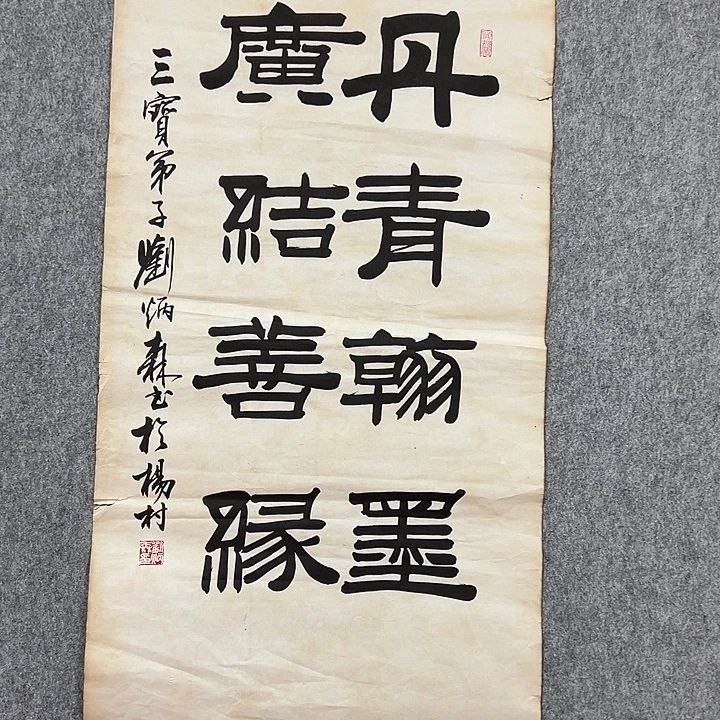 丹青翰墨
廣結善緣
三寶弟子劉炳森書於楊村